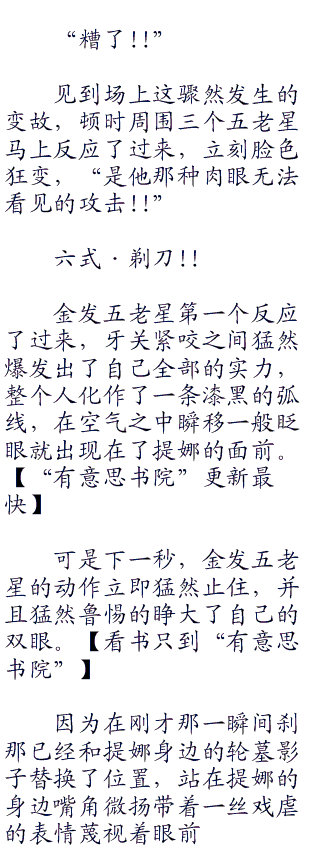 “糟了!!”
见到场上这骤然发生的
变故，顿时周围三个五老星
马上反应了过来，立刻脸色
狂变，“是他那种肉眼无法
看见的攻击!!”
六式·剃刀!!
金发五老星第一个反应
了过来，牙关紧咬之间猛然
爆发出了自己全部的实力，
整个人化作了一条漆黑的弧
线，在空气之中瞬移一般眨
眼就出现在了提娜的面前。
【“有意思书院”更新最
快】
可是下一秒，金发五老
星的动作立即猛然止住，并
且猛然鲁惕的睁大了自己的
双眼。【看书只到“有意思
书院”】
因为在刚才那一瞬间刹
那已经和提娜身边的轮墓影
子替换了位置，站在提娜的
身边嘴角微扬带着一丝戏虐
的表情蔑视着眼前